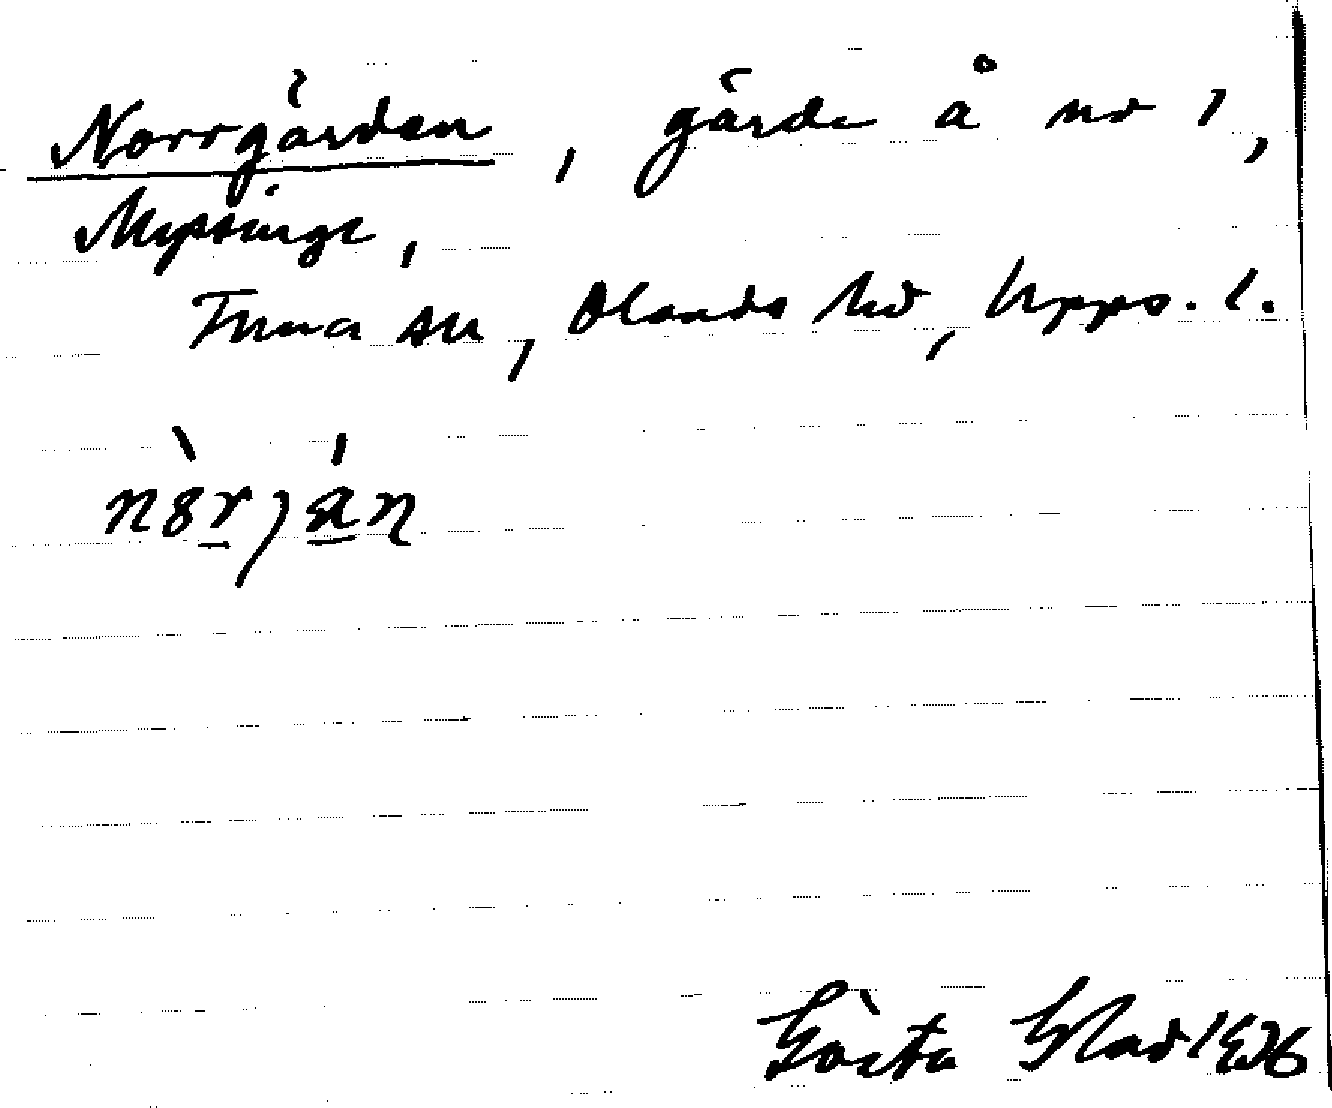 Norrgården, gärde å nr 1,
Myssinge,
Tuna sn, Olands hd, Upps. l.
Gösta Blad 1936